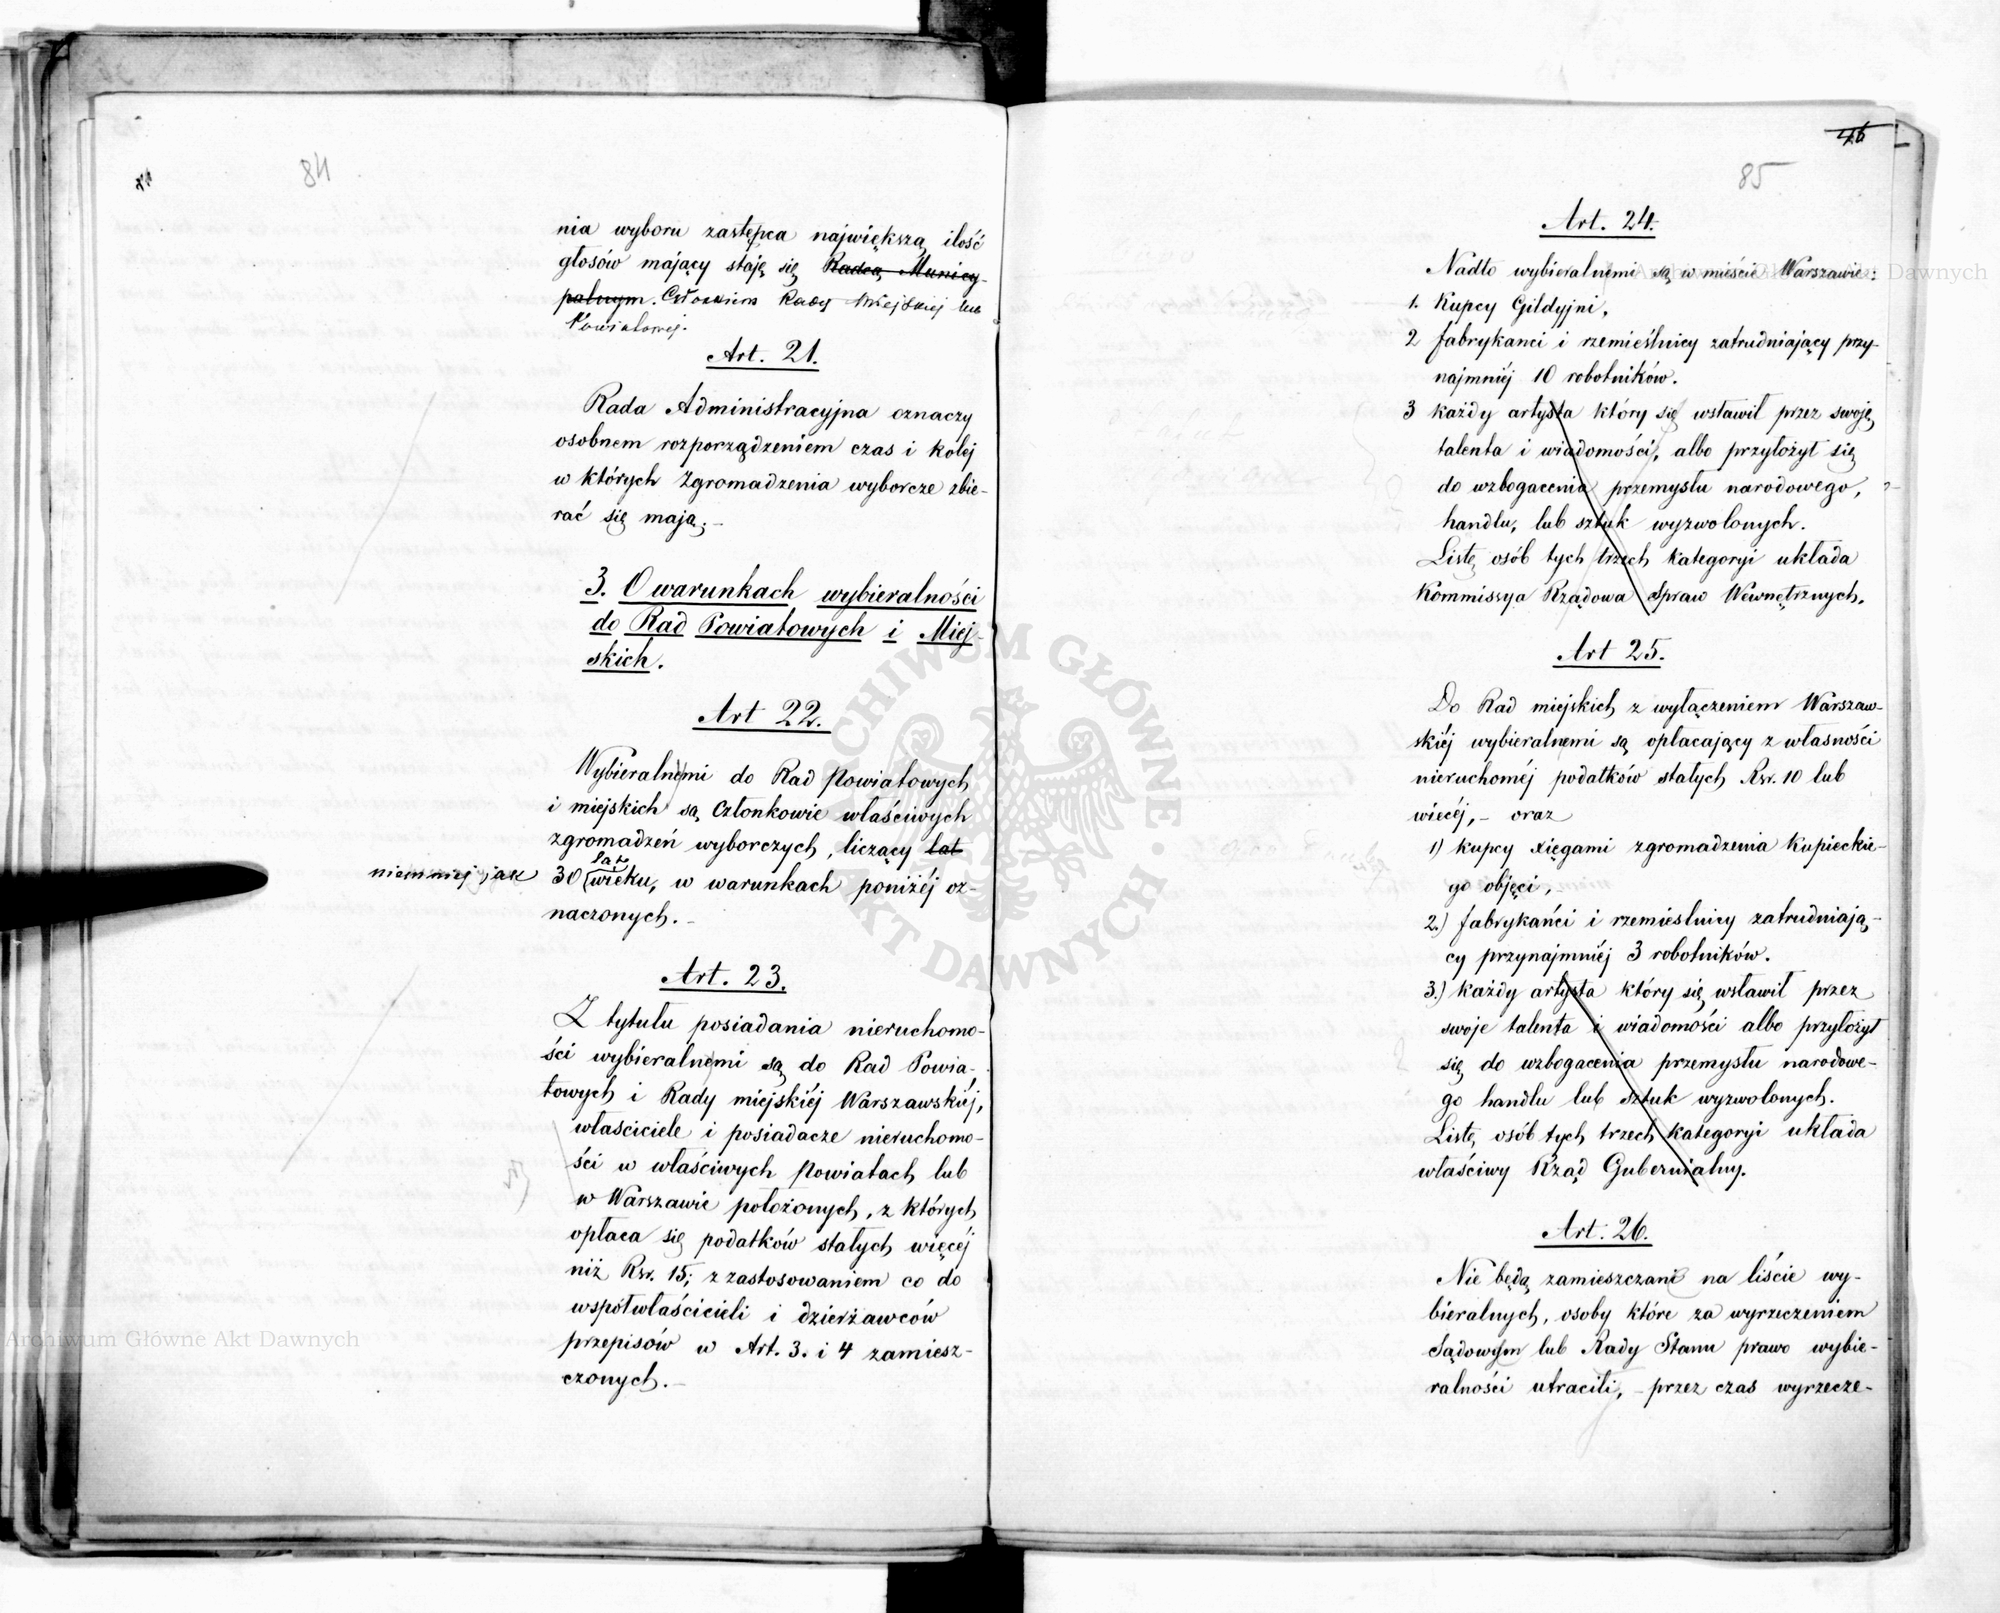 84
nia wyboru zastępca największą ilość
głosów mający staję się Radcą Municy-
palnym. Członkiem Rady Miejskiej lub
Powiatowej.
Art. 21.
Rada Administracyjna oznaczy
osobnem rozporządzeniem czas i kolej
w których Zgromadzenia wyborcze zbie-
rać się mają.-
3. O warunkach wybieralności
do Rad Powiatowych i Miej-
skich.
Art 22.
Wybieralnemi do Rad Powiatowych
i miejskich są Członkowie właściwych
zgromadzeń wyborczych, liczący lat
lat
niemniej jak 30 wieku, w warunkach poniżéj oz-
naczonych.-
Art. 23.
Z tytułu posiadania nieruchomo-
ści wybieralnemi są do Rad Powia-
towych i Rady miejskiéj Warszawskiéj,
właściciele i posiadacze nieruchomo-
ści w właściwych Powiatach lub
w Warszawie położonych, z których
opłaca się podatków stałych więcéj
niż Rsr. 15; z zastosowaniem co do
współwłaścicieli i dzierżawców
przepisów w Art. 3. i 4 zamiesz-
czonych.-
46
85
Art. 24.
Nadto wybieralnemi są w mieście Warszawie:
1. Kupcy Gildyjni,
2 fabrykanci i rzemieślnicy zatrudniający przy-
najmniéj 10 robotników.
3 każdy artysta który się wsławił przez swoję
talenta i wiadomości, albo przyłożył się
do wzbogacenia przemysłu narodowego,
handlu, lub sztuk wyzwolonych.
Listę osób tych trzech kategoryi układa
Kommissya Rządowa Spraw Wewnętrznych.
Art 25.
Do Rad miejskich z wyłączeniem Warszaw-
skiéj wybieralnemi są opłacający z własności
nieruchoméj podatków stałych Rsr. 10 lub
wiecéj,- oraz
1) kupcy xięgami zgromadzenia Kupieckie-
go objęci,
2.) fabrykańci i rzemieslnicy zatrudniają-
cy przynajmniéj 3 robotników.
3.) każdy artysta który się wsławił przez
swoje talenta i wiadomości albo przyłożył
się do wzbogacenia przemysłu narodowe-
go handlu lub sztuk wyzwolonych.
Listę osób tych trzech kategoryi układa
właściwy Rząd Gubernialny.
Art. 26.
Nie będą zamieszczane na liście wy-
bieralnych, osoby które za wyrzeczeniem
Sądowym lub Rady Stanu prawo wybie-
ralności utracili,- przez czas wyrzecze-
ARCHIWUM GŁÓWNE AKT DAWNYCH
Archiwum Główne Akt Dawnych
Archiwum Główne Akt Dawnych